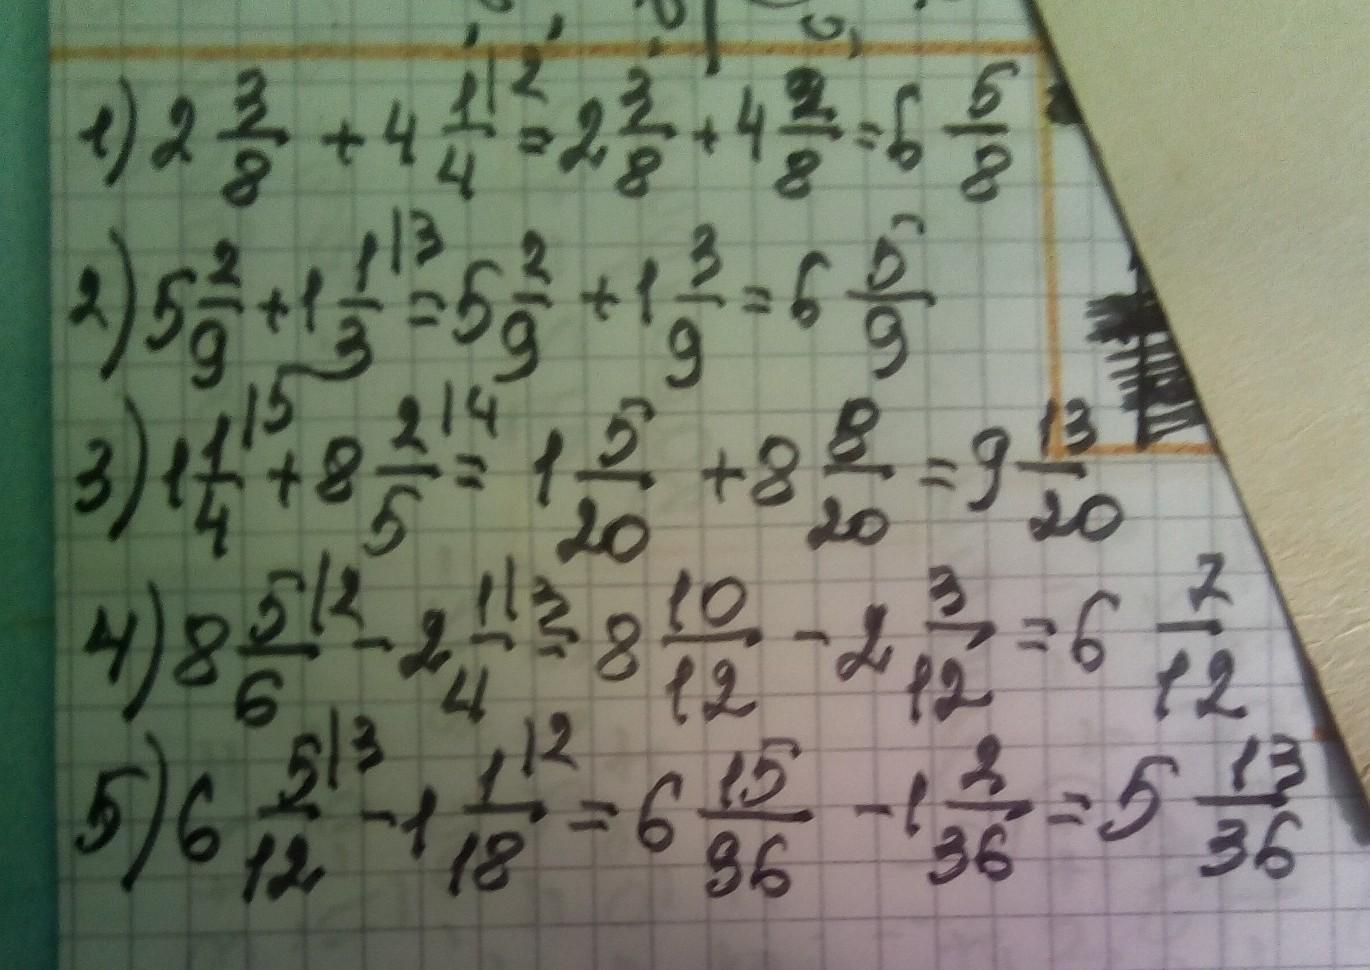 1) 2 3/8 + 4 1/4 |2 = 2 3/8 + 4 2/8 = 6 5/8
2) 5 2/9 + 1 1/3 |3 = 5 2/9 + 1 3/9 = 6 5/9
3) 1 1/4 |5 + 8 2/5 |4 = 1 5/20 + 8 8/20 = 9 13/20
4) 8 5/6 |2 - 2 1/4 |3 = 8 10/12 - 2 3/12 = 6 7/12
5) 6 5/12 |3 - 1 1/18 |2 = 6 15/36 - 1 2/36 = 5 13/36